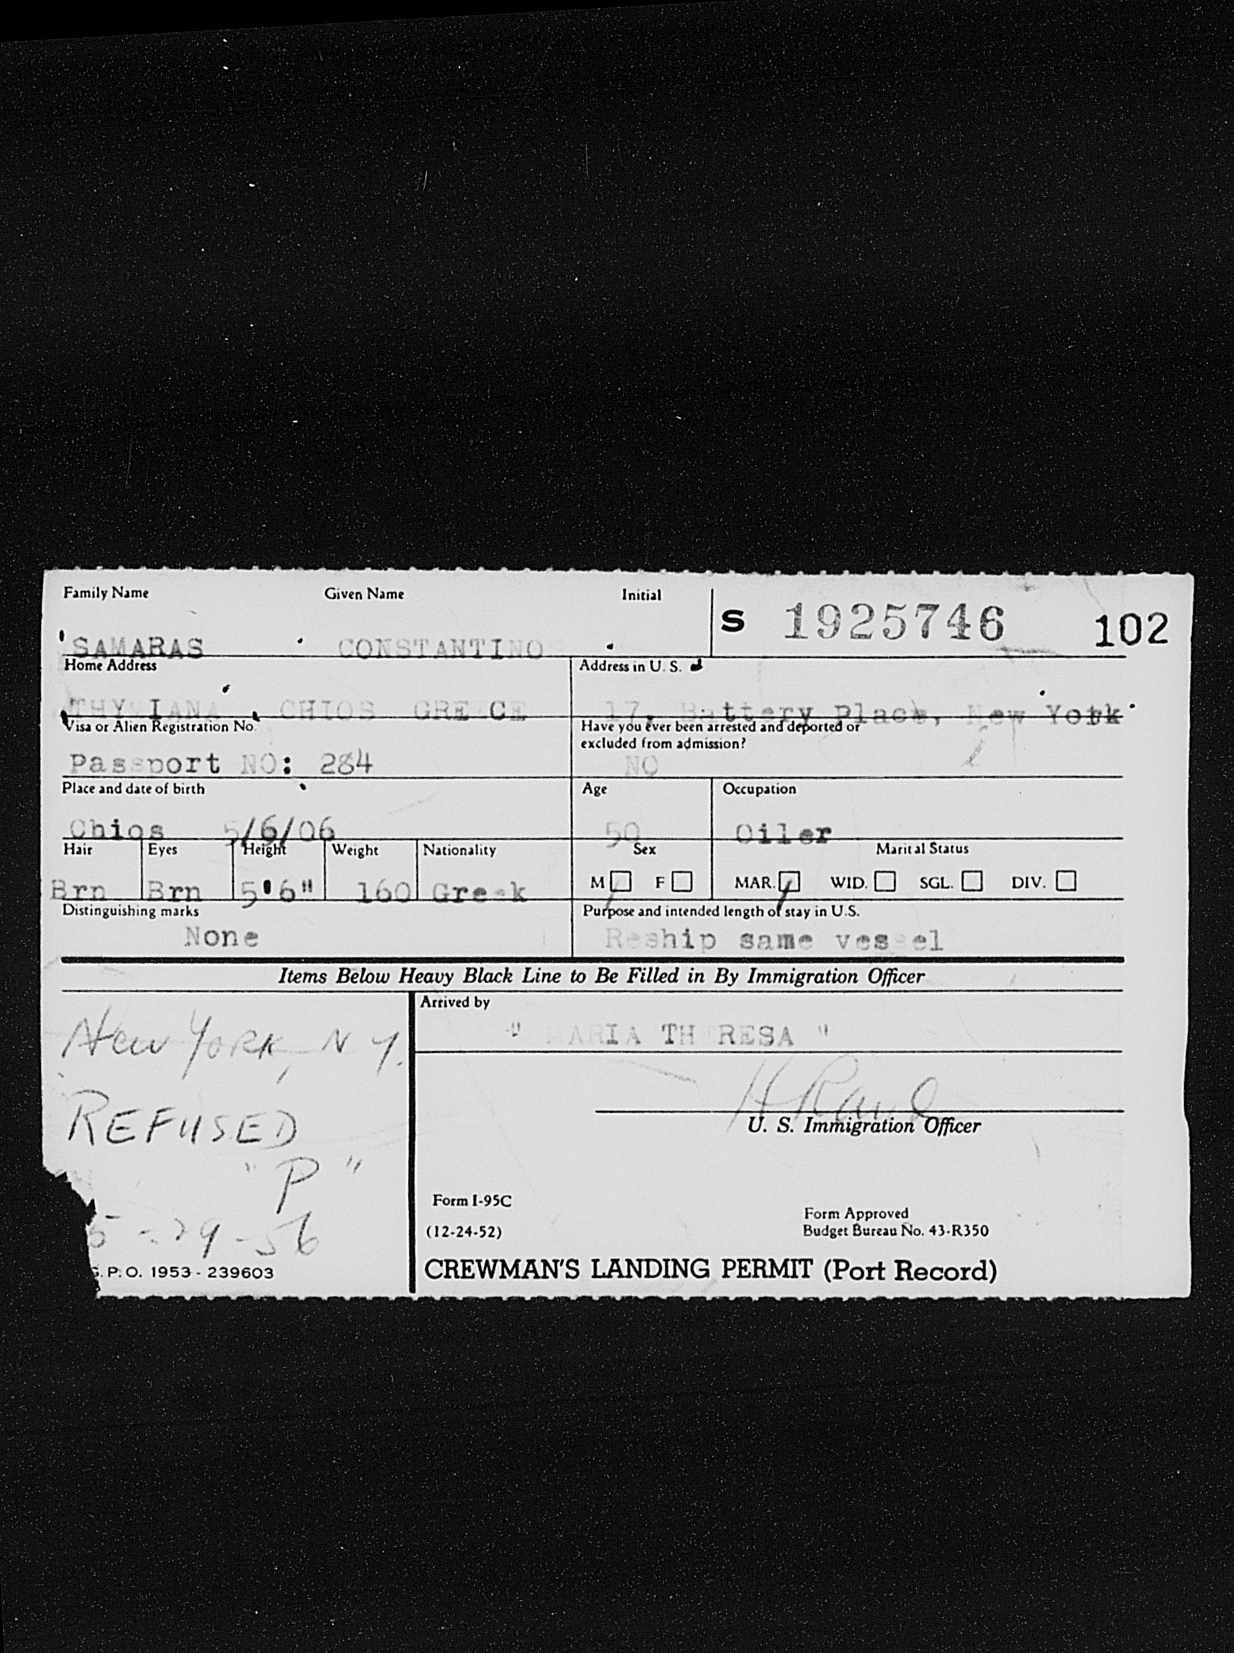 Family Name Given Name Initial
S 1925746 102
SAMARAS CONSTANTINOS
Home Address Address in U. S.
THYMIANA CHIOS GREECE 17, Battery Place, New York
Visa or Alien Registration No. Have you ever been arrested and deported or
excluded from admission?
Passport NO: 284 NO
Place and date of birth Age Occupation
Chios 5/6/06 50 Oiler
Hair Eyes Height Weight Nationality Sex Marital Status
Brn Brn 5'6" 160 Greek M F MAR. WID. SGL. DIV.
Distinguishing marks Purpose and intended length of stay in U.S.
None Reship same vessel
Items Below Heavy Black Line to Be Filled in By Immigration Officer
Arrived by
" MARIA THERESA "
New York, N Y.
U. S. Immigration Officer
REFUSED
"P"
Form I-95C Form Approved
5-29-56 (12-24-52) Budget Bureau No. 43-R350
P. O. 1953 - 239603 CREWMAN'S LANDING PERMIT (Port Record)